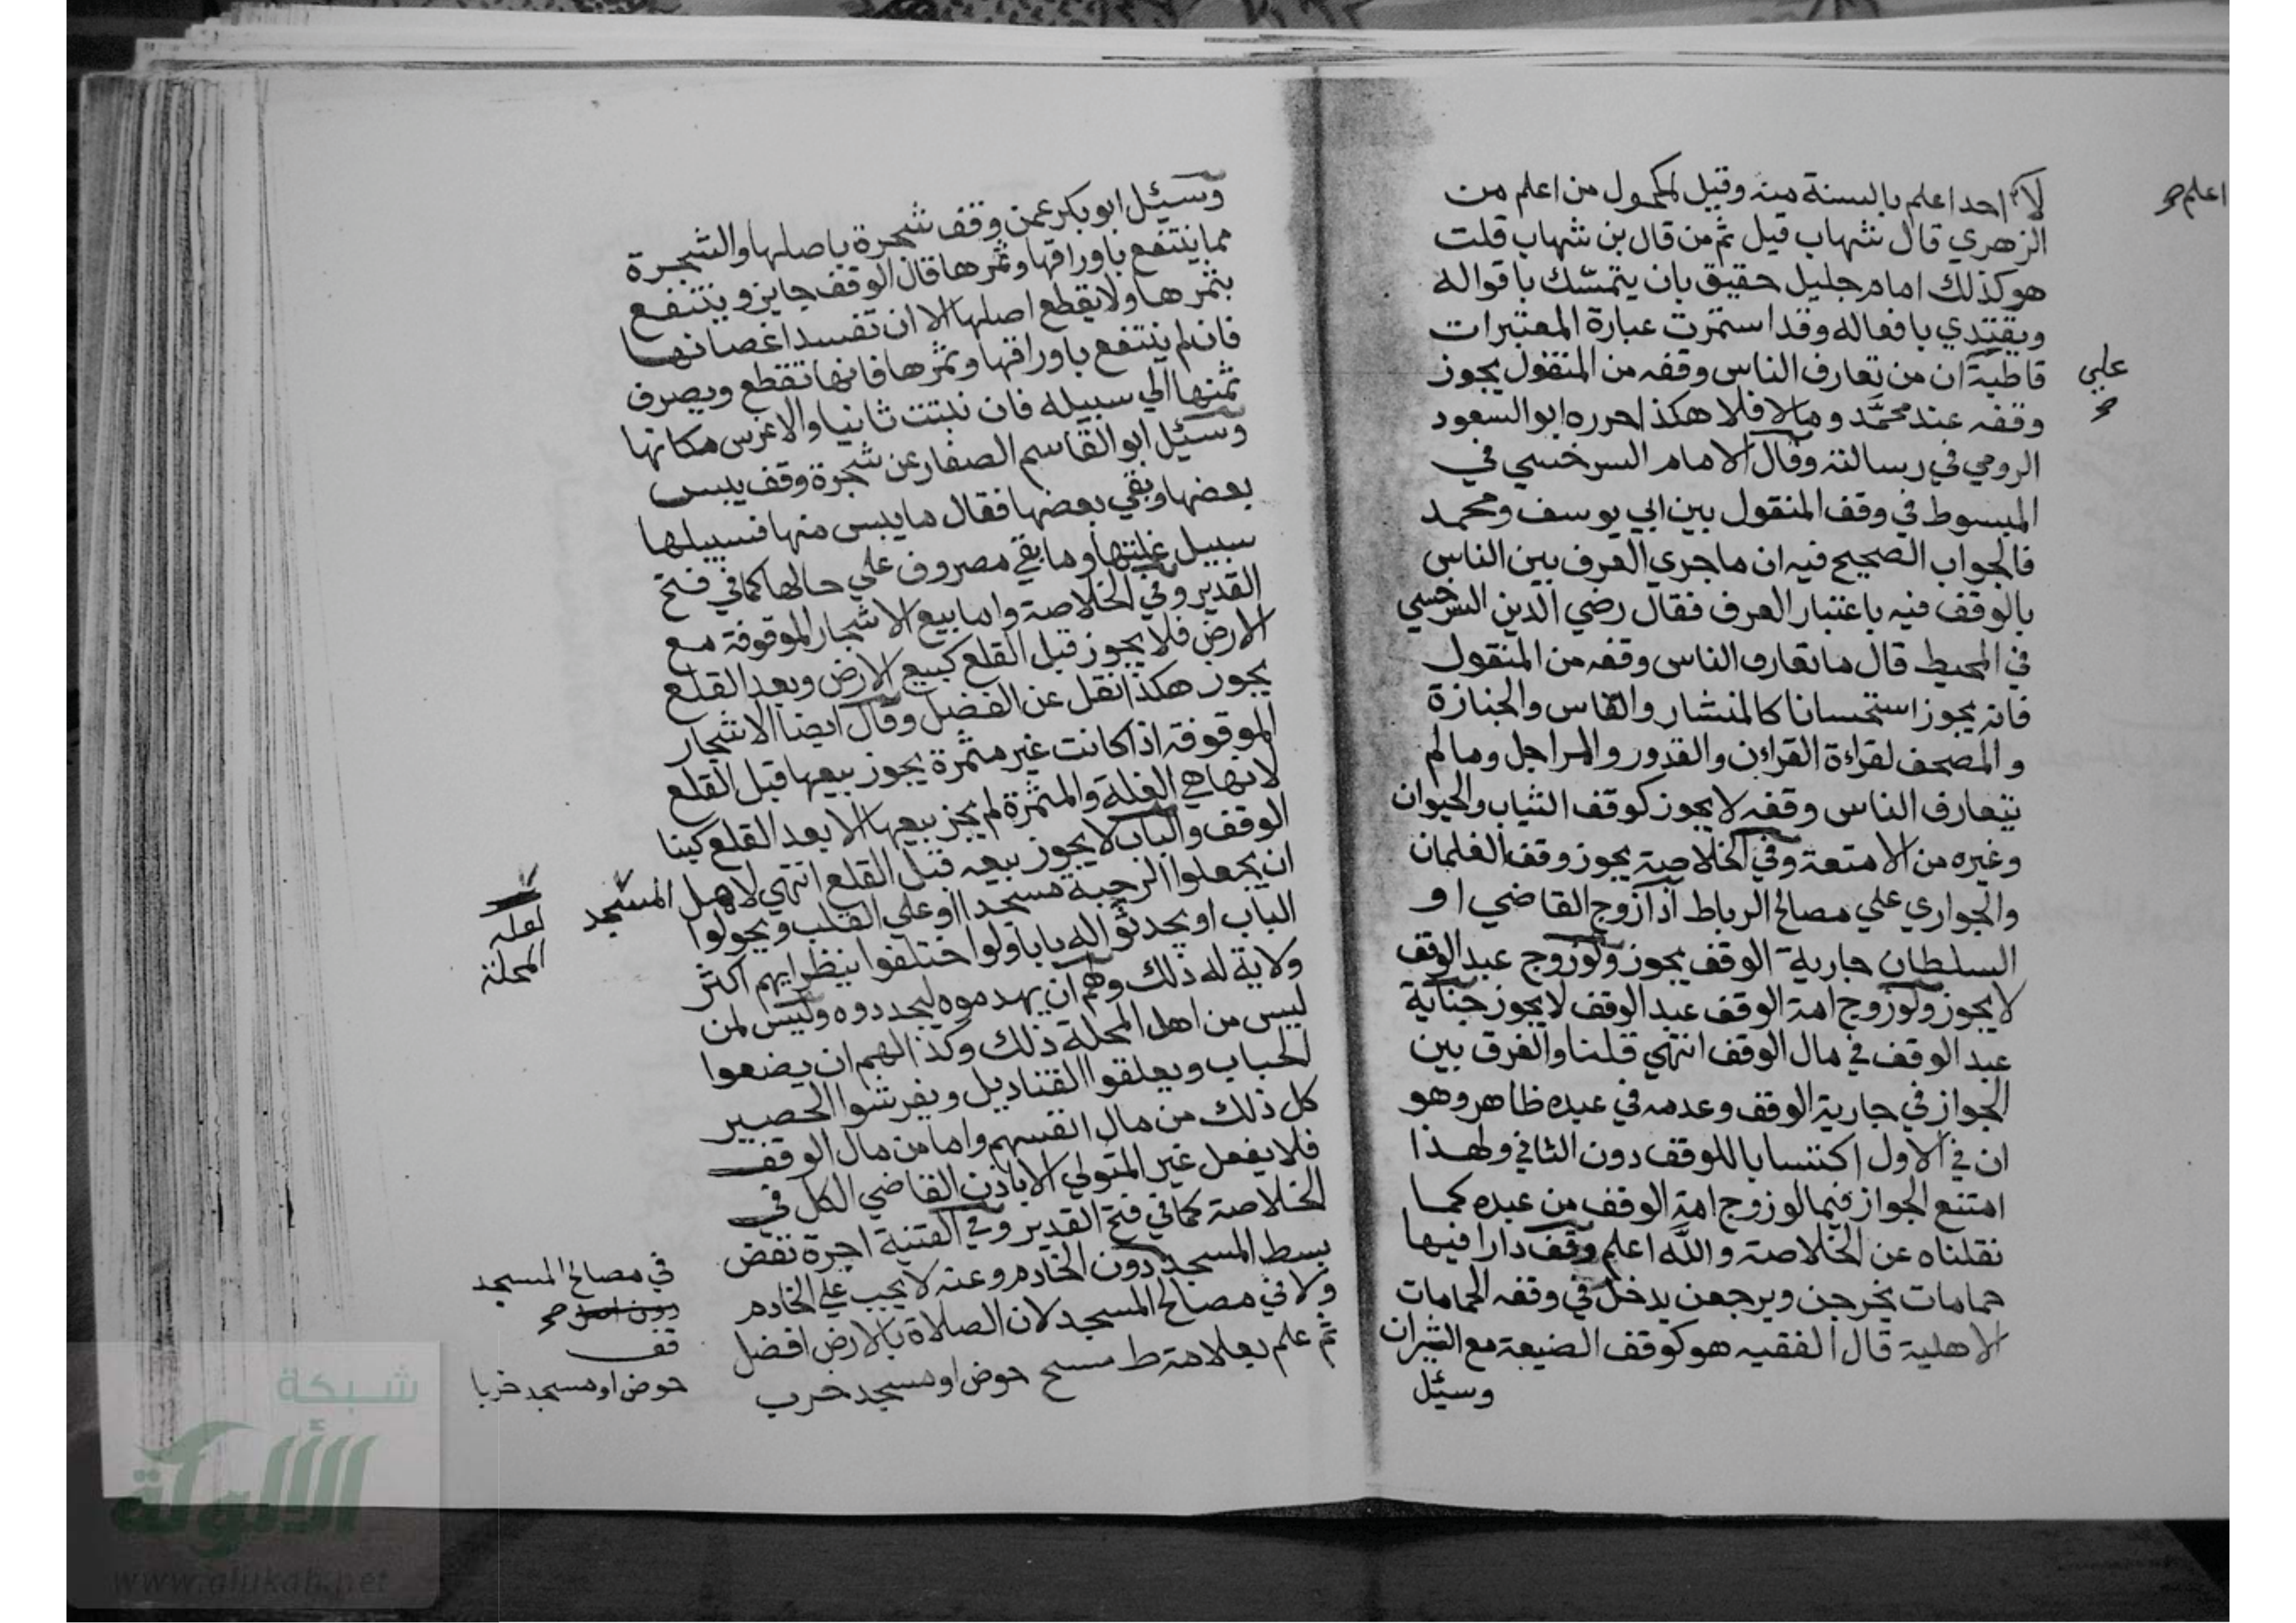 لا احد اعلم بالسنة منه وقيل لمكحول من اعلم من
اعلم صح
الزهري قال شهاب قيل ثم من قال بن شهاب قلت
هو كذلك امام جليل حقيق بان يتمسك باقواله
ويقتدي بافعاله وقد استمرت عبارة المعتبرات
قاطبة ان من تعارف الناس وقفه من المنقول يجوز
علي
صح
وقفه عند محمد وما لا فلا هكذا حرره ابو السعود
الرومي في رسالته وقال الامام السرخسي في
المبسوط في وقف المنقول بين ابي يوسف ومحمد
فالجواب الصحيح فيه ان ما جري العرف بين الناس
بالوقف فيه باعتبار العرف فقال رضي الدين السرخسي
في المحيط قال ما تعارف الناس وقفه من المنقول
فانه يجوز استحسانا كالمنشار والفاس والجنازة
والمصحف لقراءة القران والقدور والمراجل وما لم
يتعارف الناس وقفه لا يجوز كوقف الثياب والحيوان
وغيره من الامتعة وفي الخلاصة يجوز وقف الغلمان
والجواري علي مصالح الرباط اذا زوج القاضي او
السلطان جارية الوقف يجوز ولو زوج عبد الوقف
لا يجوز ولو زوج امة الوقف عبد الوقف لا يجوز جناية
عبد الوقف في مال الوقف انتهي قلنا والفرق بين
الجواز في جارية الوقف وعدمه في عبده ظاهر وهو
ان في الاول اكتسابا للوقف دون الثاني ولهذا
امتنع الجواز فيما لو زوج امة الوقف من عبده كما
نقلناه عن الخلاصة والله اعلم وقف دارا فيها
حمامات يخرجن ويرجعن يدخل في وقفه الحمامات
الاهلية قال الفقيه هو كوقف الضيعة مع الثيران
وسئيل
وسئيل ابو بكر عمن وقف شجرة باصلها والشجرة
مما ينتفع باوراقها وثمرها قال الوقف جايز وينتفع
بثمرها ولا يقطع اصلها الا ان تفسد اغصانها
فان لم ينتفع باوراقها وثمرها فانها تقطع ويصرف
ثمنها الي سبيله فان نبتت ثانيا والا غرس مكانها
وسئيل ابو القاسم الصفار عن شجرة وقف يبس
بعضها وبقي بعضها فقال ما يبس منها فسبيلها
سبيل غلتها وما بقي مصروف علي حالها كما في فتح
القدير وفي الخلاصة واما بيع الاشجار الموقوفة مع
الارض فلا يجوز قبل القلع كبيع الارض وبعد القلع
يجوز هكذا نقل عن الفضل وقال ايضا الاشجار
الموقوفة اذا كانت غير مثمرة يجوز بيعها قبل القلع
لانها هي الغلة والمثمرة لم يجز بيعها الا بعد القلع كبنا
الوقف والباب لا يجوز بيعه قبل القلع انتهي لاهل المسجد
لعله
المحلة
ان يجعلوا الرحبة مسجدا او علي القلب ويحولوا
الباب او يحدثوا له بابا ولو اختلفوا ينظر ايهم اكثر
ولاية له ذلك ولهم ان يهدموه ليجددوه وليس لمن
ليس من اهل المحلة ذلك وكذا لهم ان يضعوا
الحباب ويعلقوا القناديل ويفرشوا الحصير
كل ذلك من مال انفسهم واما من مال الوقف
فلا يفعل غير المتولي الا باذن القاضي الكل في
الخلاصة كما في فتح القدير وفي القنية اجرة نفض
بسط المسجد دون الخادم وعنه لا يجب علي الخادم
في مصالح المسجد
ولا في مصالح المسجد لان الصلاة بالارض افضل
قف
ثم علم بعلامة ط مسح حوض او مسجد خرب
حوض او مسجد خربا
شبكة
الألوكة
www.alukah.net